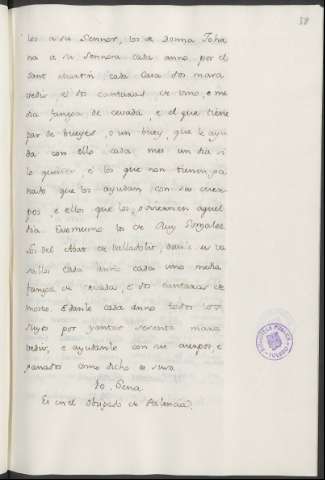 58
los a su Sennor, los de Donna Joha
na a su Sennora cada anno por el
Sant Martin cada casa dos mara
vedis, e dos cantaras de vino, e me
dia fanega de cevada, e el que tiene
par de bueyes, o un buey, que le ayu
da con ello cada mes un dia si
lo quiere, e los que non tienen ga
nado que los ayudan con sus cuer
pos, e ellos que los goviernen aquel
dia. Eso mismo los de Ruy Gonzalez
los del Abat de Valladolit, dan a
sallos cada anno cada uno media
fanega de cevada, e dos cantaras de
mosto, e danle cada anno todos los
suyos por yantar sesenta mara
vedis, e ayudanle con sus cuerpos, e
ganados como dicho es suso
Pena
Es en el Obispado de Palencia.
BIBLIOTECA PUBLICA
TOLEDO